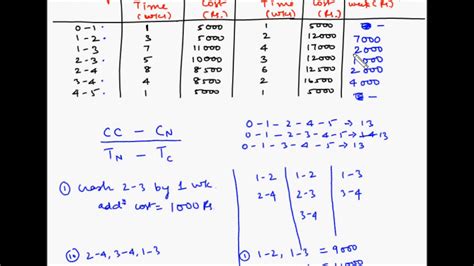 Time Cost Time Cost week (Rs.)
(wk) (Rs.) (wk) (Rs.)
0-1 1 5000 1 5000 -
1-2 3 5000 2 12000 7000
1-3 7 11000 4 17000 2000
2-3 5 10000 3 12000 1000
2-4 8 8500 6 12500 2000
3-4 4 8500 2 16500 4000
4-5 1 5000 1 5000 -
CC - CN
TN - TC
0-1-2-4-5 → 13
0-1-2-3-4-5 → 13
0-1-3-4-5 → 13
① crash 2-3 by 1 wk
addl cost = 1000 Rs.
1-2 1-2 1-3
2-4 2-3 3-4
3-4
2-4, 3-4, 1-3
① 1-2, 1-3 = 9000